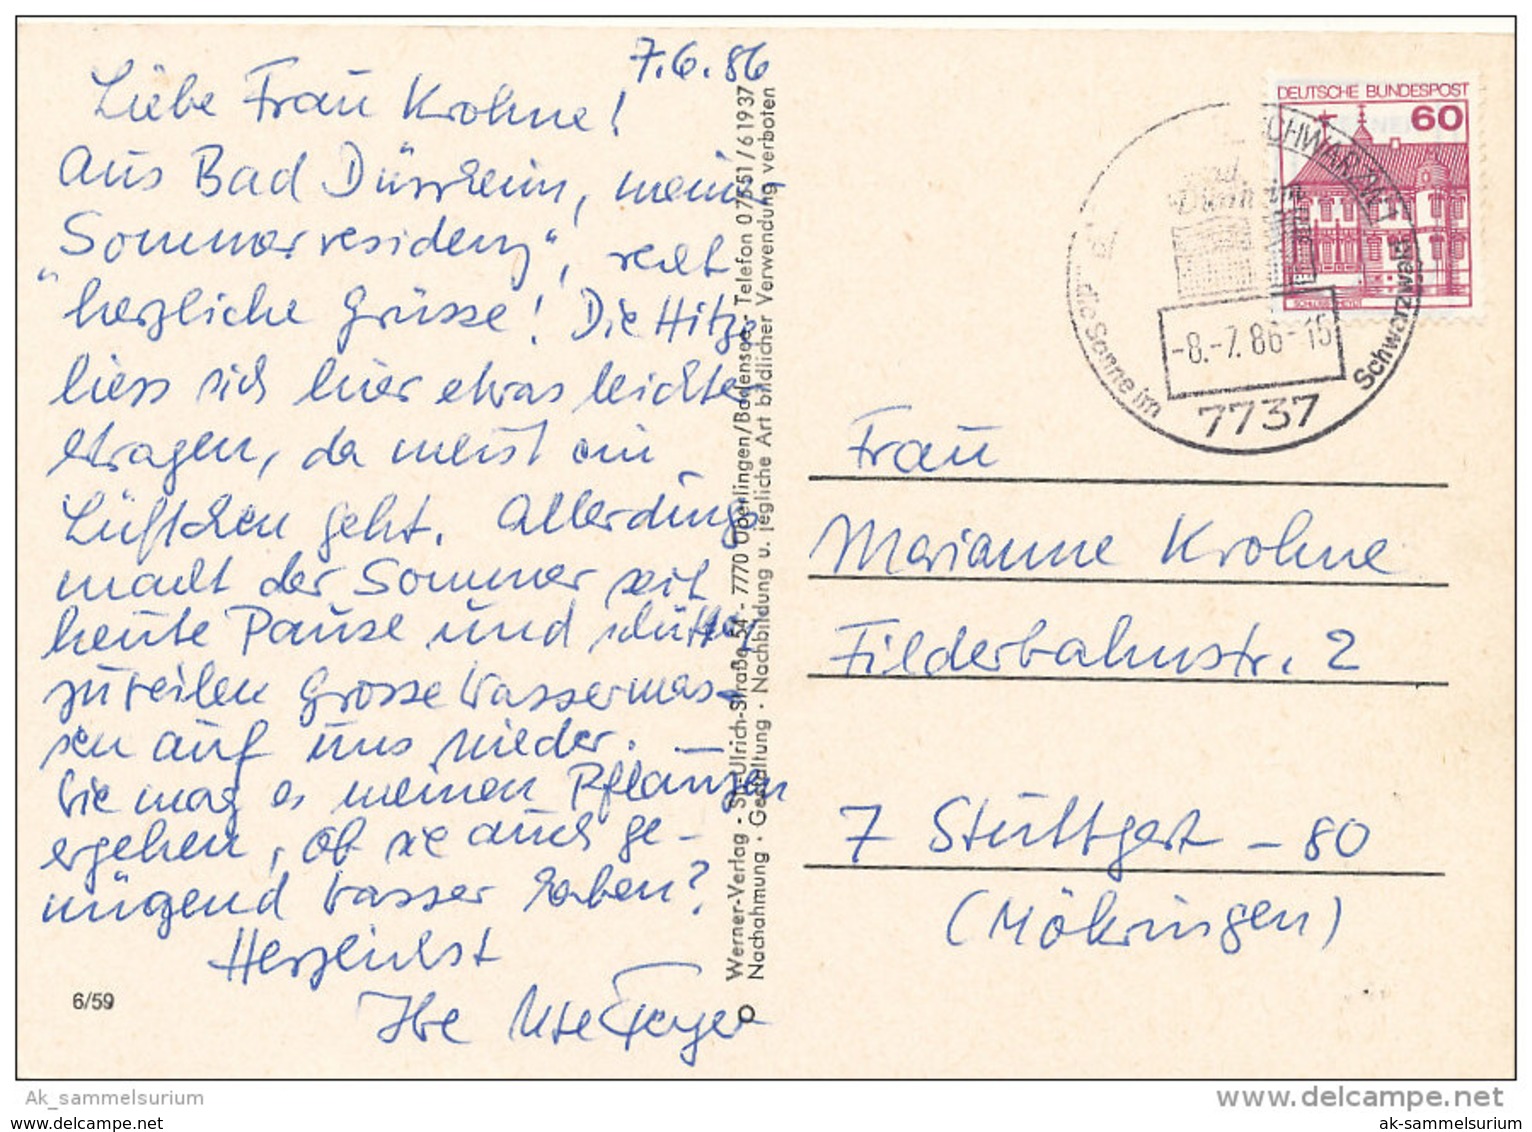 7.6.86
Liebe Frau Krohne!
Aus Bad Dürrheim, meiner
"Sommerresidenz", recht
herzliche Grüsse! Die Hitze
liess sich hier etwas leichter
ertragen, da meist ein
Lüftchen geht. Allerdings
macht der Sommer seit
heute Pause und schüttet
zuweilen grosse Wassermas-
sen auf uns nieder. —
Wie mag es meinen Pflanzen
ergehen, ob sie auch ge-
nügend Wasser haben?
Herzlichst
Ihre Ute
6/59
Werner-Verlag · St.-Ulrich-Straße 54 - 7770 Überlingen/Bodensee - Telefon 07551/61937
Nachahmung · Gestaltung · Nachbildung u. jegliche Art bildlicher Verwendung verboten
DEUTSCHE BUNDESPOST
60
SCHLOSS RHEYDT
SCHWARZWA
Bad
Dürrheim
die Sonne im
Schwarzwald
-8.-7.86-15
7737
Frau
Marianne Krohne
Filderbahnstr. 2
7 Stuttgart - 80
(Möhringen)
Ak_sammelsurium
www.delcampe.net
www.ak-sammelsurium.com
ak-sammelsurium.com